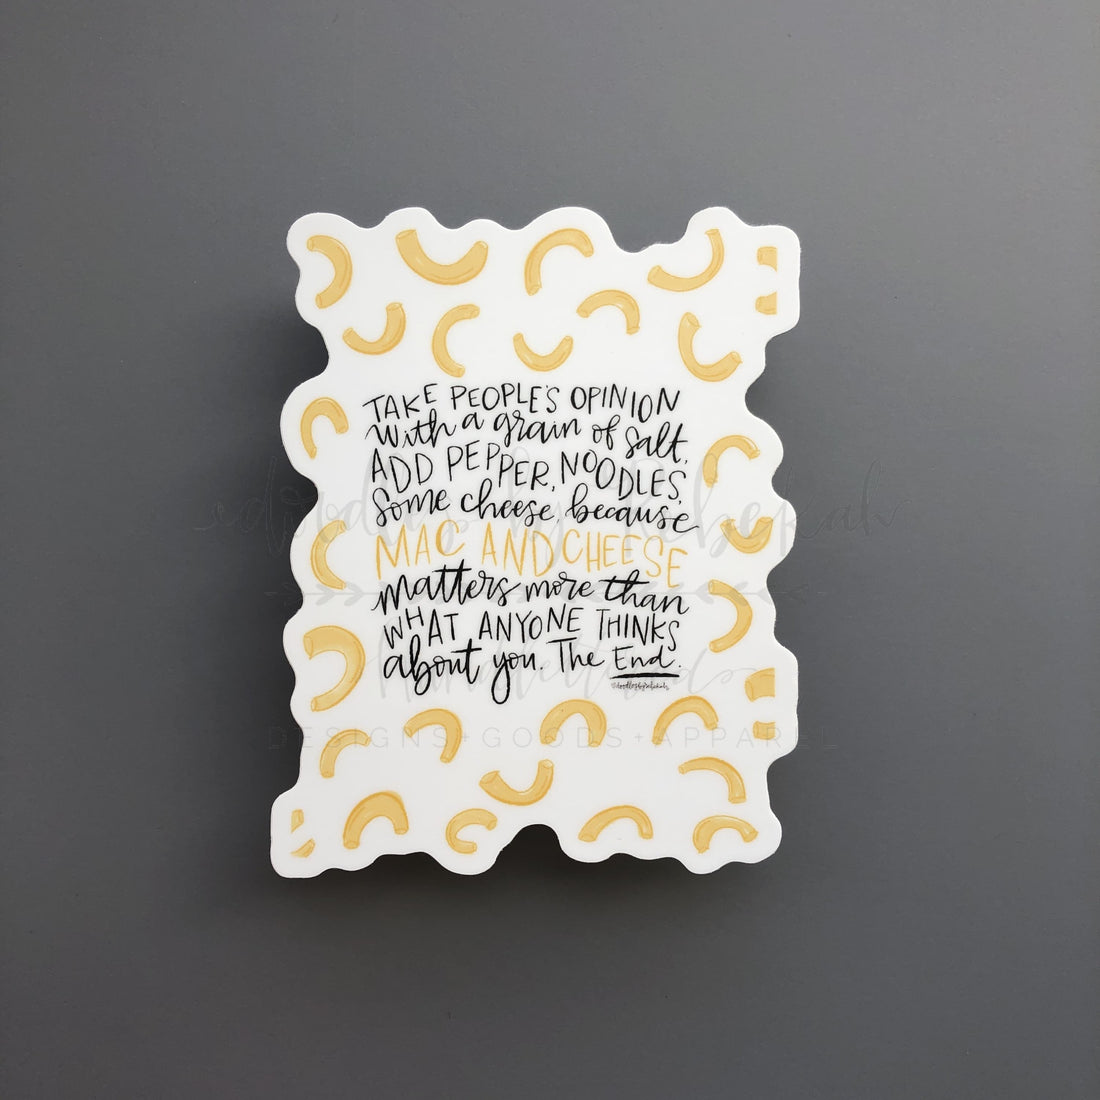 TAKE PEOPLE'S OPINION
with a grain of salt.
ADD PEPPER, NOODLES,
some cheese, because
MAC AND CHEESE
matters more than
WHAT ANYONE THINKS
about you. The End.
@doodlesbyrebekah
doodles by Rebekah
handlettered
DESIGNS+GOODS+APPAREL